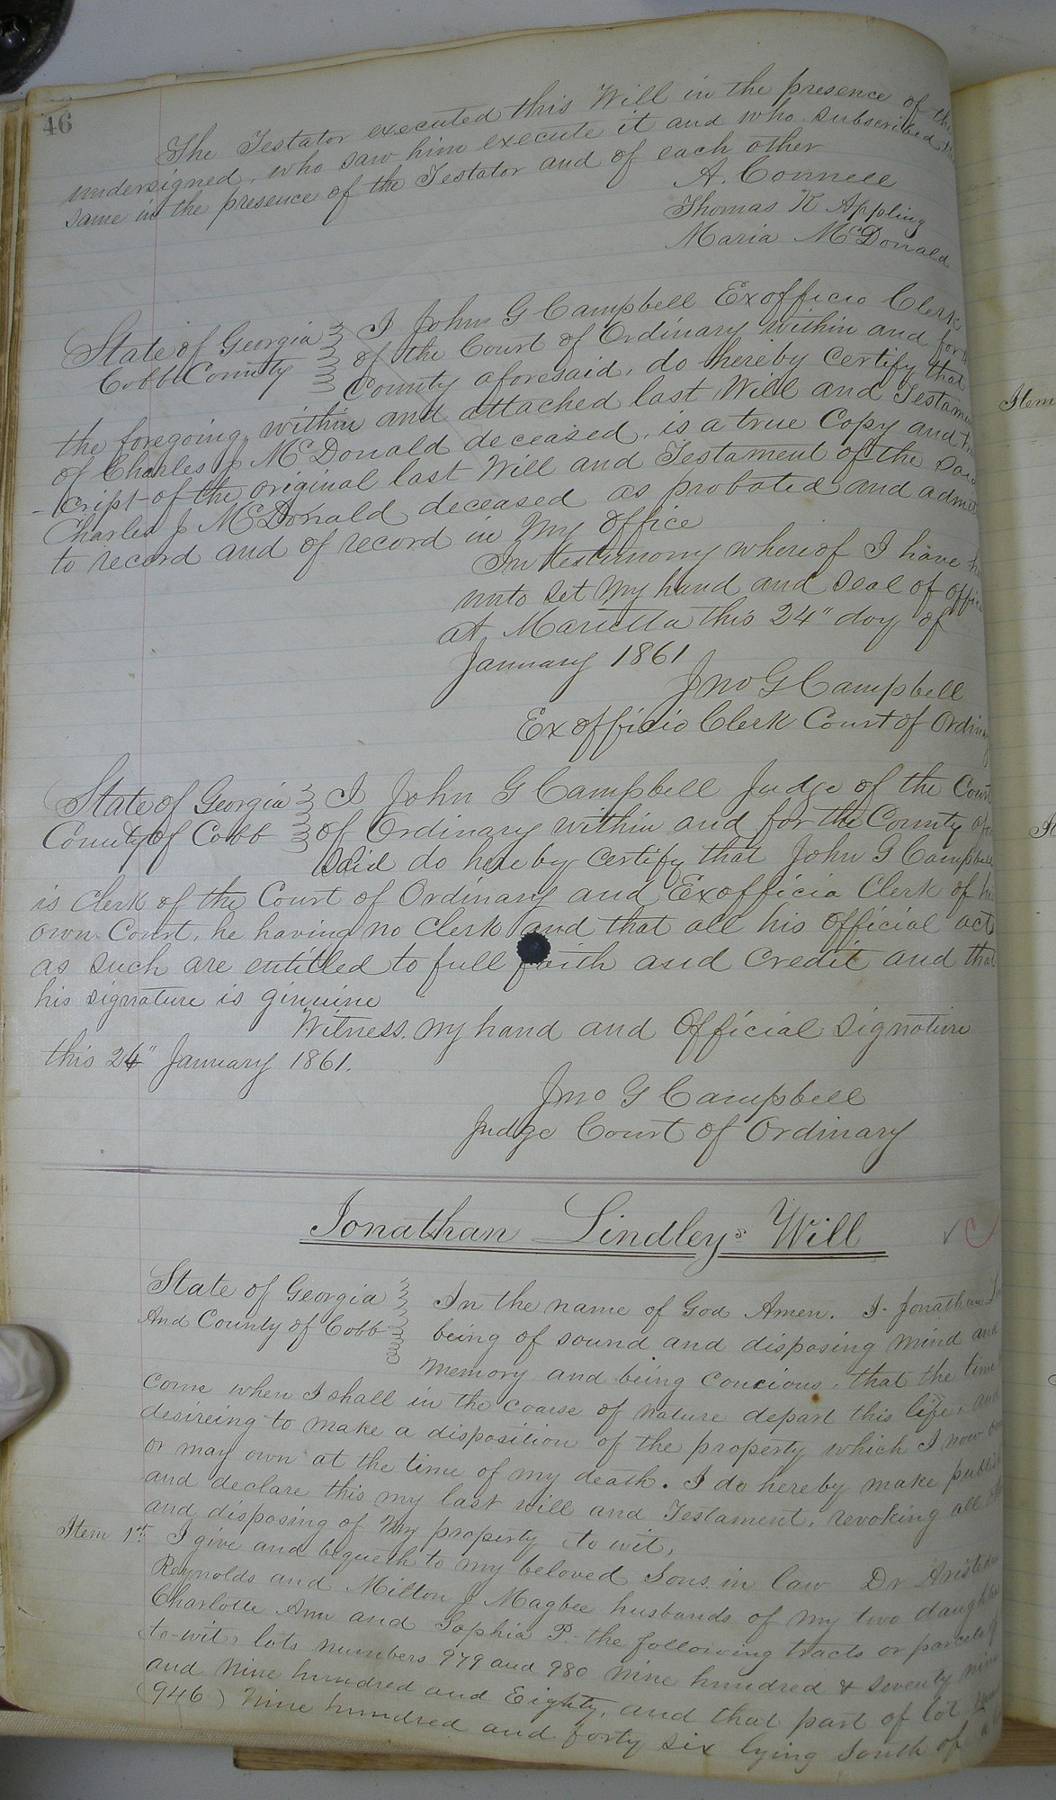 46
The Testator executed this Will in the presence of the
undersigned, who saw him execute it and who subscribed
same in the presence of the Testator and of each other
A. Connell
Thomas K Appling
Maria McDonald
State of Georgia
Cobb County
I John G Campbell Exofficio Clerk
of the Court of Ordinary within and for
County aforesaid, do hereby certify that
the foregoing, within and attached last Will and Testam
of Charles J McDonald deceased, is a true Copy and
-cript of the original last Will and Testament of the Said
Charles J McDonald deceased as probated and admit
to record and of record in my office
In testimony whereof I have
unto set my hand and seal of offic
at Marietta this 24" day of
January 1861
Jno G Campbell
Ex officio Clerk Court of Ordin
State of Georgia
County of Cobb
I John G Campbell Judge of the Court
of Ordinary within and for the County
said do hereby certify that John G Campbell
is Clerk of the Court of Ordinary and Exofficio Clerk of
own Court, he having no Clerk and that all his official act
as such are entitled to full faith and credit and that
his signature is ginuine
Witness my hand and Official signature
this 24" January 1861.
Jno G Campbell
Judge Court of Ordinary
Jonathan Lindleys Will
State of Georgia
And County of Cobb
In the name of God Amen. I Jonathan
being of sound and disposing mind and
memory and being concious, that the time
come when I shall in the coarse of nature depart this life, and
desireing to make a disposition of the property which I now
or may own at the time of my death. I do hereby make publi
and declare this my last will and Testament, revoking all
and disposing of my property to wit,
Item 1st I give and bequeth to my beloved Sons in law Dr
Reynolds and Milton J Magbee husbands of my two daughters
Charlotte Ann and Sophia P. the following tracts or parcels
to-wit, lots numbers 979 and 980 nine hundred & seventy nine
and nine hundred and Eighty, and that part of lot
(946) nine hundred and forty six lying South of
Item